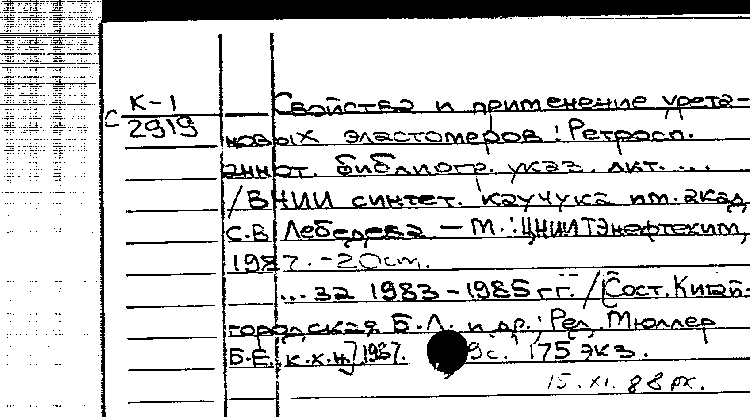 К-1
С 2919
Свойства и применение урета-
новых эластомеров : Ретросп.
аннот. библиогр. указ. лит. ...
/ВНИИ синтет. каучука им. акад.
С.В. Лебедева — М. : ЦНИИТЭнефтехим,
1987. - 20 cm.
... за 1983-1985 гг. /Сост. Китай-
городская Б.Л. и др.; Ред. Мюллер
Б.Е., к.х.н] 1987. 9с. 175 экз.
15. XI. 88